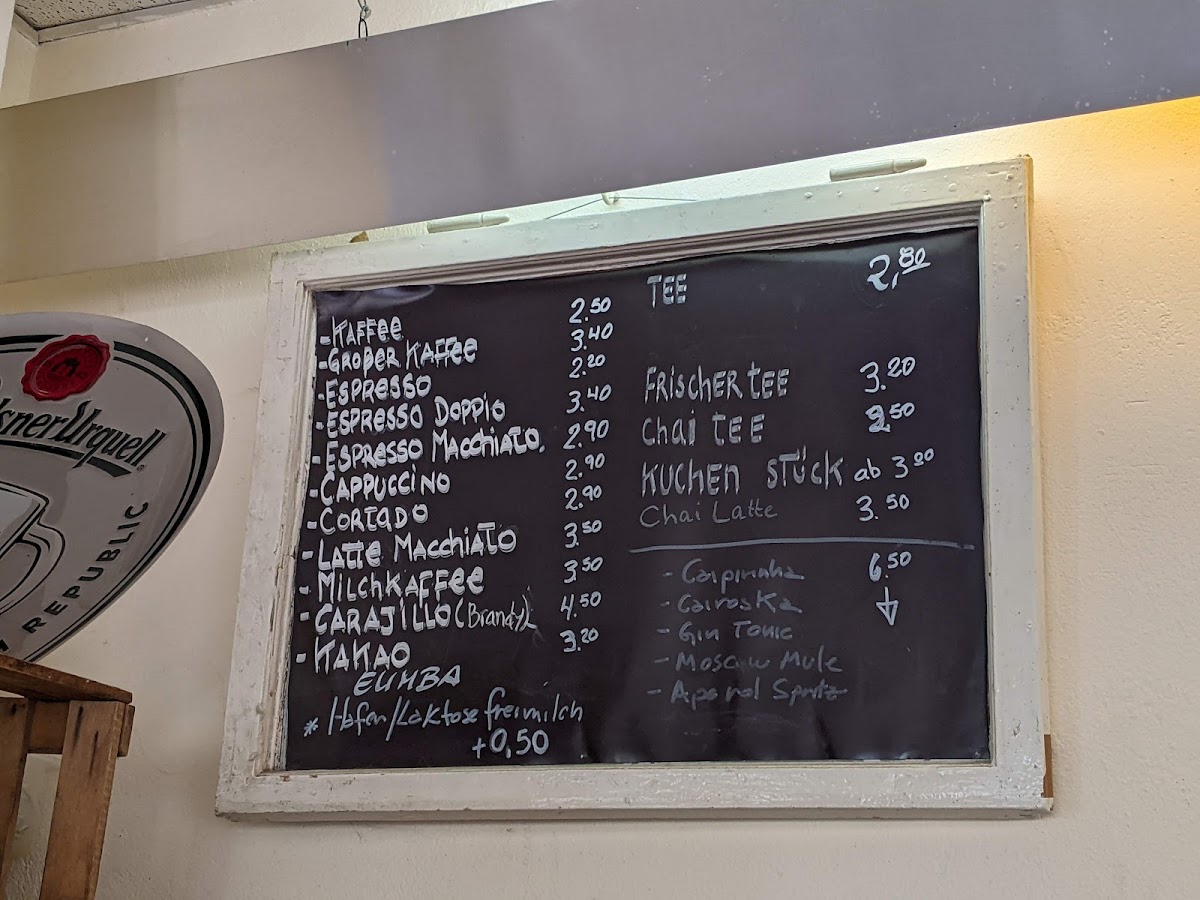 -Kaffee 2.50
-Großer Kaffee 3.40
-Espresso 2.20
-Espresso Doppio 3.40
-Espresso Macchiato. 2.90
-Cappuccino 2.90
-Cortado 2.90
-Latte Macchiato 3.50
-Milchkaffee 3.50
-Carajillo (Brandy) 4.50
-Kakao 3.20
* Hafer/Laktosefreimilch
+0,50
TEE 2,80
Frischer TEE 3.20
Chai TEE 2.50
Kuchen Stück ab 3.00
Chai Latte 3.50
- Caipirinha 6.50
- Cairoska ↓
- Gin Tonic
- Moscow Mule
- Aperol Spritz
Urquell
REPUBLIC